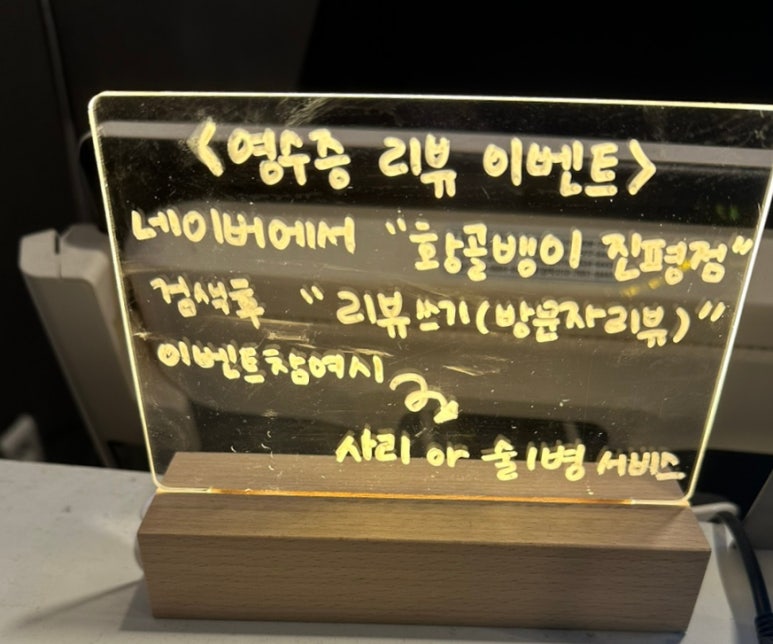 <영수증 리뷰 이벤트>
네이버에서 "황골뱅이 진평점"
검색후 "리뷰쓰기(방문자리뷰)"
이벤트참여시
사리 or 술1병 서비스